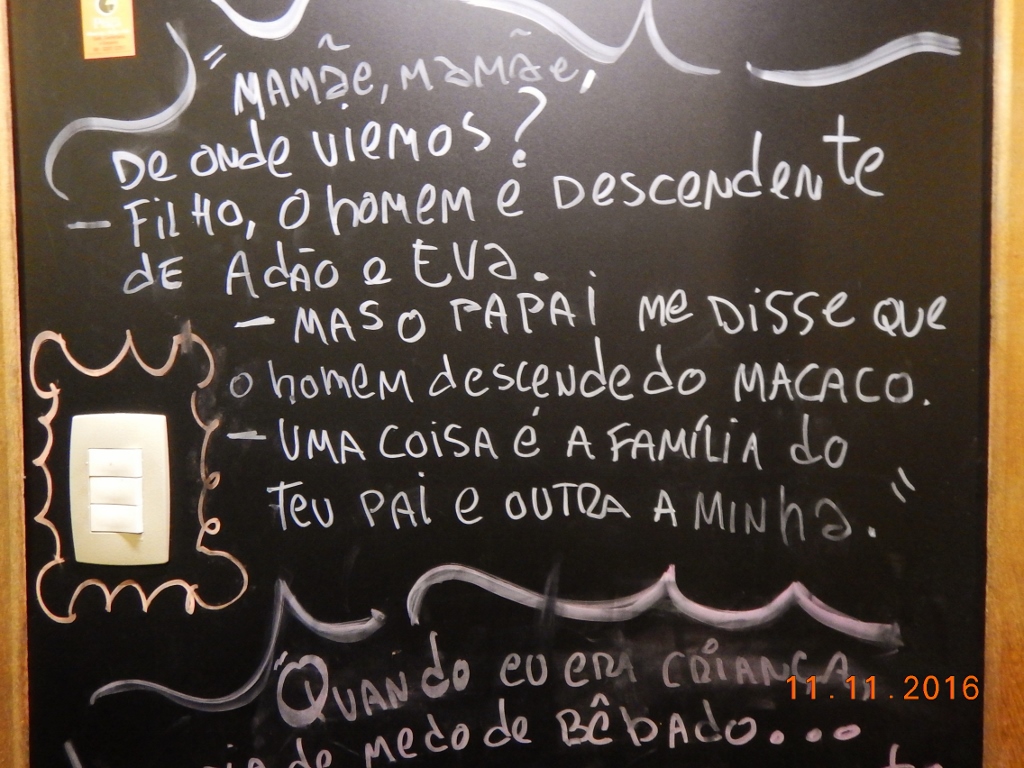 "MAMÃE, MAMÃE,
DE ONDE VIEMOS?
- FILHO, O HOMEM É DESCENDENTE
DE ADÃO E EVA.
- MAS O PAPAI ME DISSE QUE
O HOMEM DESCENDE DO MACACO.
- UMA COISA É A FAMÍLIA DO
TEU PAI E OUTRA A MINHA."
"QUANDO EU ERA CRIANÇA,
DE MEDO DE BÊBADO...
11.11.2016